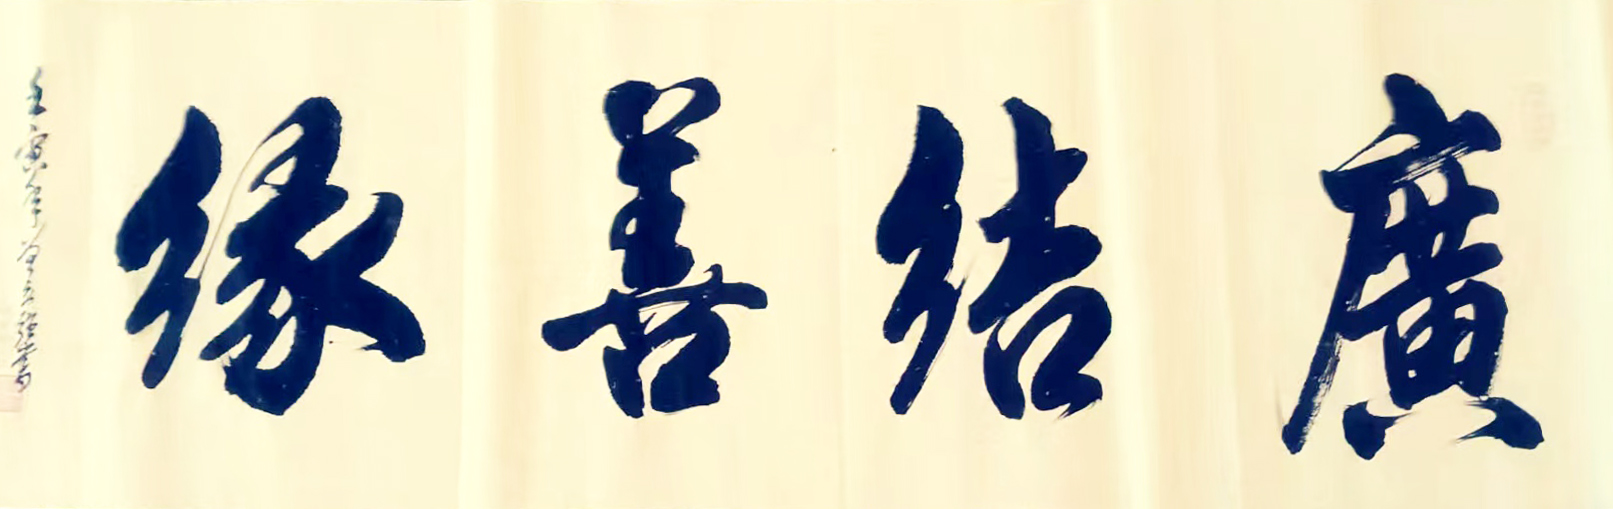 廣結善緣
壬寅年